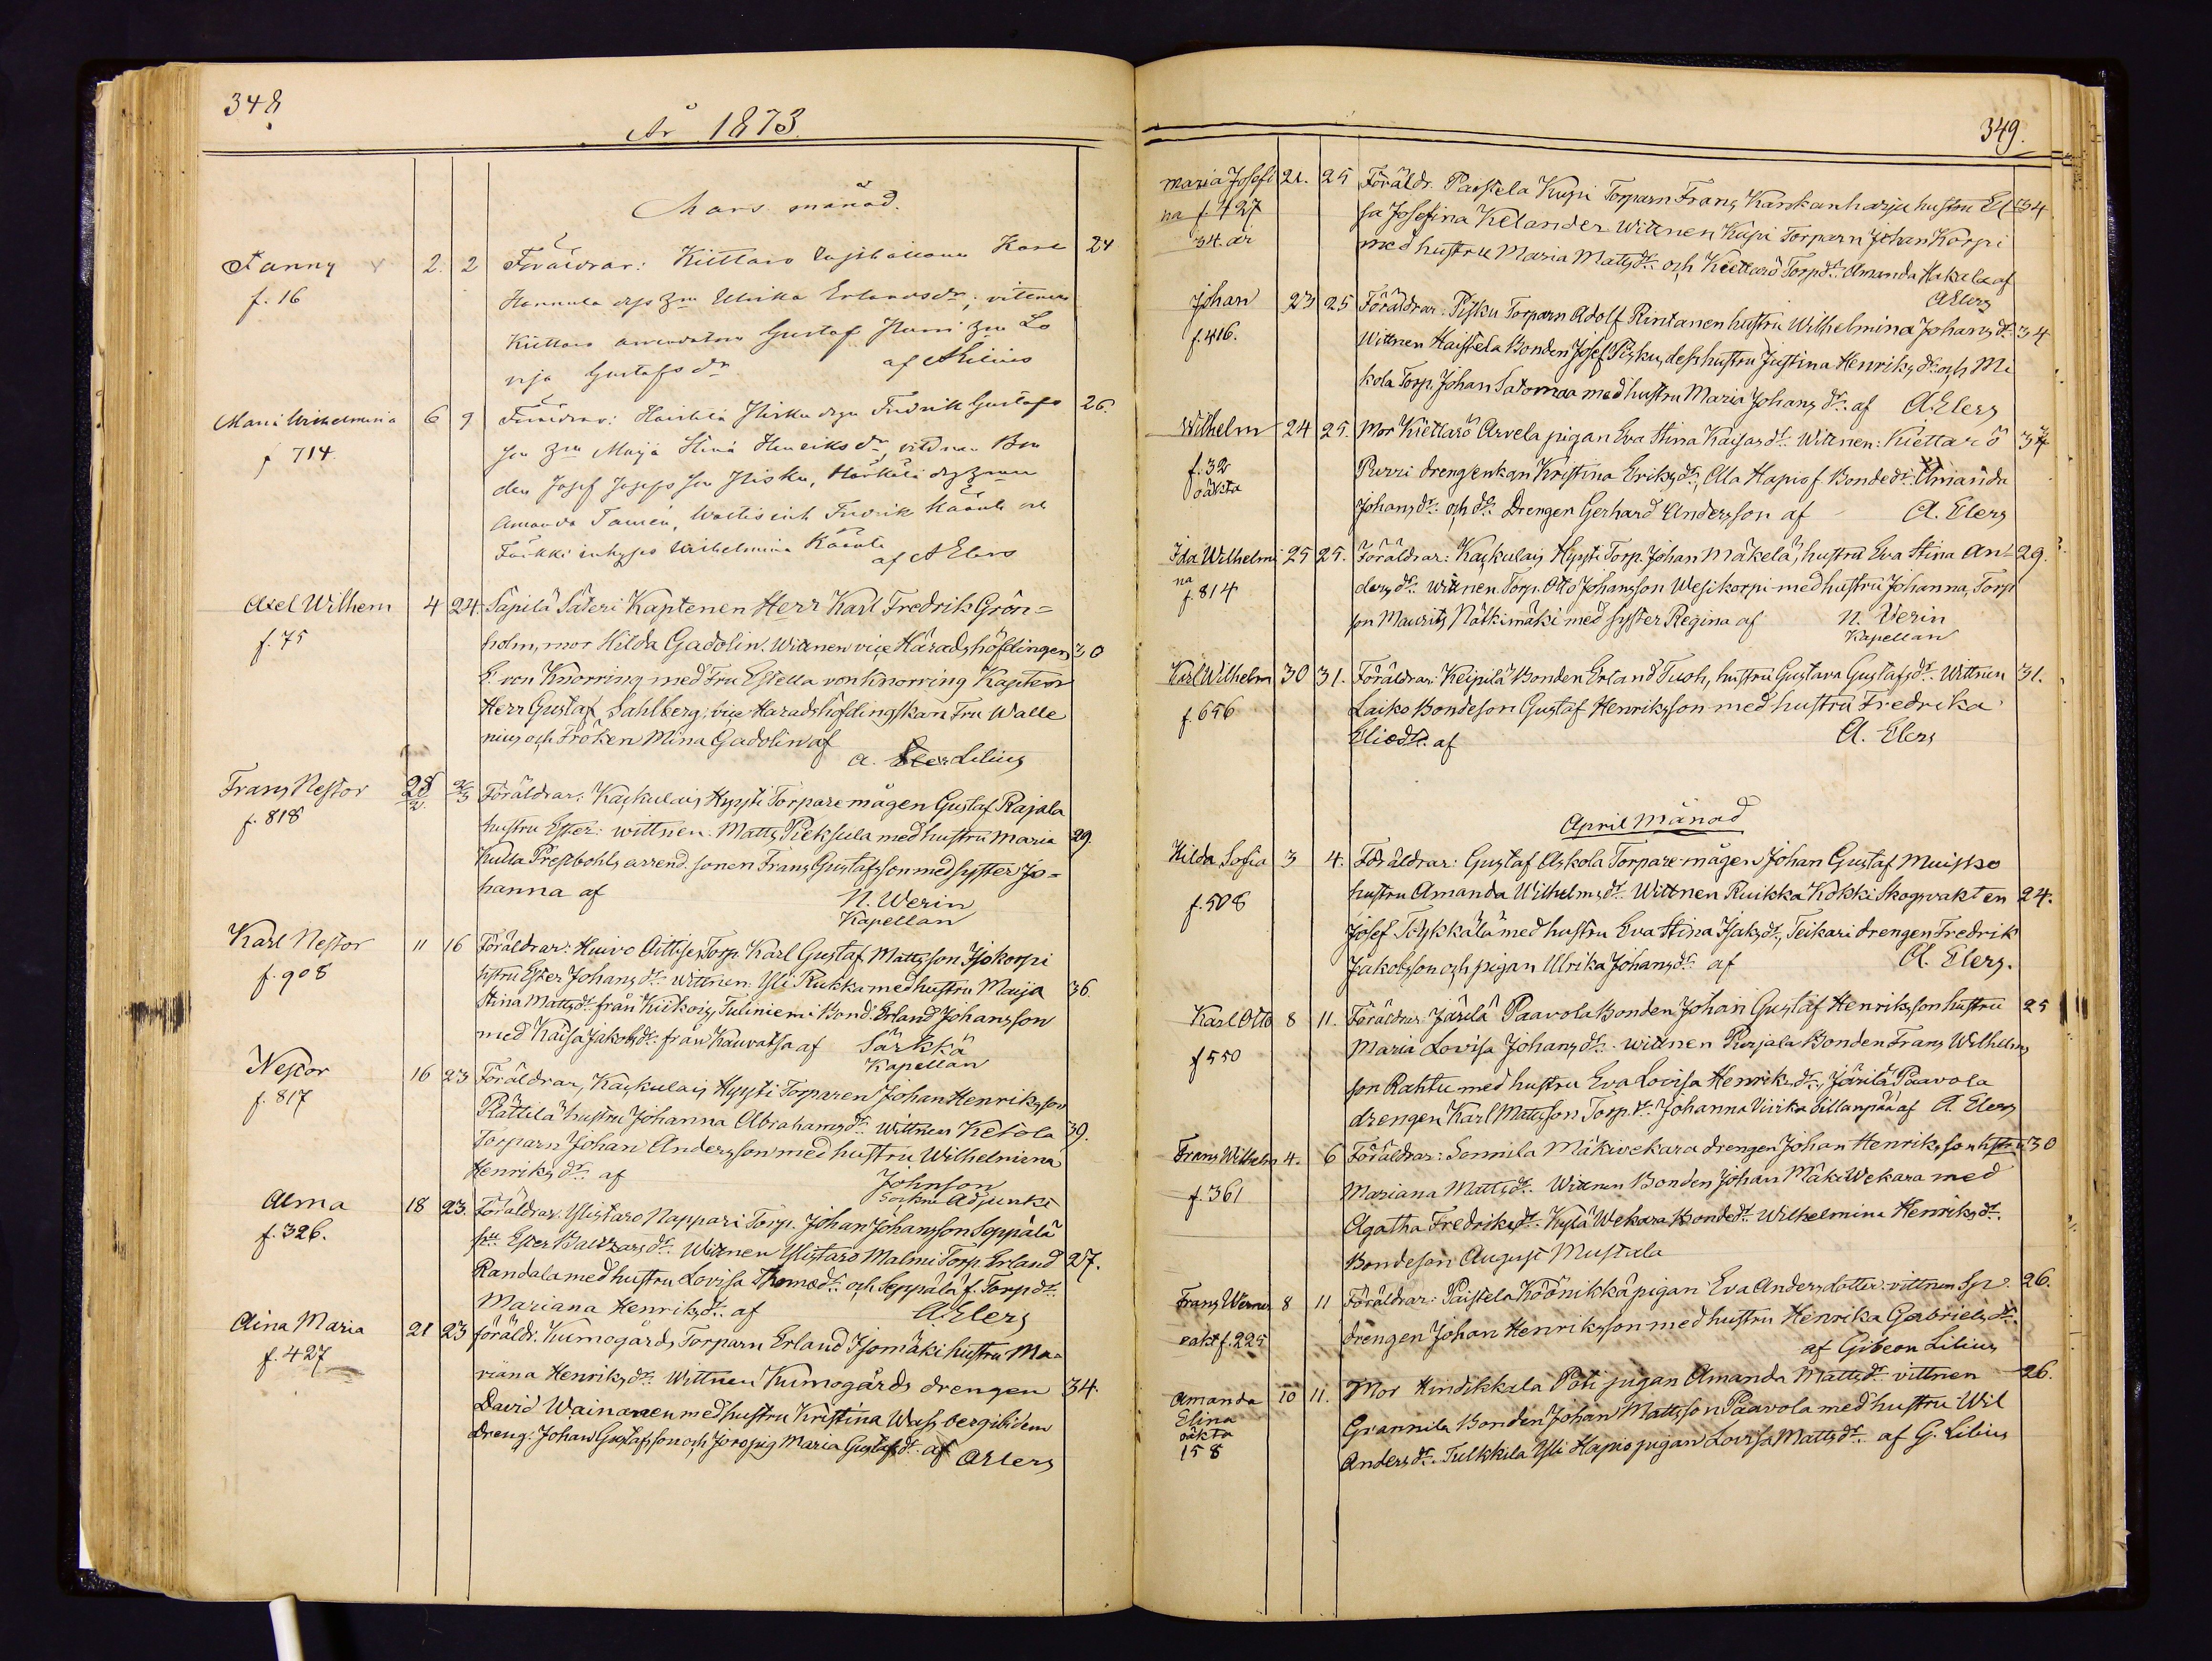 348
År 1873.
Mars månad.
Fanny 2. 2 Föräldrar: Kiettaro Karl 24
f. 16 Hannula Ulrika Erlandsdr; vittnen
Kiettaro Gustaf zu Lo
visa Gustafsdr af ALilius
Maria Wilhelmina 6 9 Föräldrar: Haistila Fredrik Gustafs 26.
f 714 son Maija Stina Henriksdr, Bon
den Josef Josefsson
Amanda Fredrik Käärlä och
Wilhelmina Käärlä
af A Elers
Axel Wilhem 4 24 Sapilä Säteri Kaptenen Herr Karl Fredrik Grön=
f. 75 holm, mor Hilda Gadolin. Wittnen vice Häradshöfdingen 30
E. von Knorring med Fru Estella von Knorring Kapten
Herr Gustaf Sahlberg, vice Haradshöfdingskan Fru Walle
nius och Fröken Mina Gadolin af
A. Lilius
Frans Nestor 28/2. 2/3 Föräldrar: Kaskulais Hyysti Torparemågen Gustaf Rajala
f. 818 hustru Ester: wittnen: Matts Pieksula med hustru Maria 29.
Kulla Prestbohls arrend. sonen Frans Gustafsson med syster Jo=
hanna af N. Werin
Kapellan
Karl Nestor 11 16 Föräldrar: Huivo Aittises Torp. Karl Gustaf Mattsson Isokorpi
f. 908 hstru Ester Johansdr. wittnen: Yli Rukka med hustru Maija 36.
Stina Mattsdr. från Kiikois Tuliniemi Bond. Erland Johansson
med Kaisa Jakobsdr. från Kauvatsa af Särkkä
Kapellan
Nestor 16 23 Föräldrar, Kaskulais Hyysti Torparen Johan Henriksson
f. 817 Rättilä hustru Johanna Abrahamsdr. wittnen Ketola 39.
Torparn Johan Andersson med hustru Wilhelmiena
Henriksdr. af Johnson
Sockne Adjunkt
Alma 18 23. Föräldrar. Ylistaro Nappari Torp. Johan Johansson Seppälä
f. 326. hru Ester Baltzarsdr. Wittnen Ylistaro Malmi Torp. Erland 27.
Randala med hustru Lovisa Thomædr. och Seppälä f. Torp dr.
Mariana Henriksdr. af AElers
Aina Maria 21 23 föräldr. Kumogårds Torparn Erland Isomäki hustru Ma=
f. 427 riana Henriksdr. Wittnen Kumogårds drengen 34.
David Wainonen med hustru Kristina Wassberg ibidem
dreng. Johan Gustafsson och Maria Gustafsdr. af AElers
349.
Maria Josefi 21. 25 Föräldr. Paistela Kupi Torparn Frans Karskanharju hustru El 34
na f. 427 sa Josefina Kelander. Wittnen Kupi Torparn Johan Korpi
34. år med hustru Maria Mattsdr. och Kiettarö Torpdr. Amanda Hakala af
AElers
Johan 23 25 Föräldrar: Pisku Torparn Adolf Rintanen hustru Wilhelmina Johansdr. 34
f. 416. Wittnen Haistela Bonden Josef Pisku, dess hustru Justina Henriksdr. och Mi
kola Torp. Johan Satomaa med hustru Maria Johansdr. af A. Elers
Wilhelm 24 25. Mor Kiettarö Arvela pigan Eva Stina Kaisasdr. Wittnen: Kiettarö 34
f. 32 Purri drengenkan Kristina Eriksdr, Ala Hapio f. Bondedr. Amanda
oäkta Johansdr. och dr. Drengen Gerhard Andersson af A. Elers
Ida Wilhelmi 25 25. Föräldrar: Kaskulais Hyysti Torp. Johan Mäkelä, hustru Eva Stina An= 29.
na dersdr. Wittnen. Torp. Otto Johansson Wesikorpi med hustru Johanna, Torp
f. 814 son Maurits Nätkimäki med syster Regina af N. Werin
Kapellan
Karl Wilhelm 30 31. Föräldrar: Keipilä Bonden Erland Tuoh, hustru Gustava Gustafsdr. Wittnen 31.
f. 656 Laiko Bondeson Gustaf Henriksson med hustru Fredrika
Eliædr. af A. Elers
April Månad
Hilda Sofia 3 4. Föräldrar: Gustaf Askola Torparemågen Johan Gustaf Muisko
f. 508 hustru Amanda Wilhelmsdr. Wittnen Ruikka Kokki Skogsvakten 24.
Josef Tykkälä med hustru Eva Stina Isaksdr, Teikari drengen Fredrik
Jakobsson och pigan Ulrika Johansdr. af A. Elers.
Karl Otto 8 11. Föräldrar: Järilä Paavola Bonden Johan Gustaf Henriksson hustru 25
f 550 Maria Lovisa Johansdr. wittnen Purjala Bonden Frans Wilhelms
son Rahtu med hustru Eva Lovisa Henriksdr, Järilä Paavola
drengen Karl Mattsson Torp. dr. Johanna Viirka Sillanpää af A. Elers
Frans Wilhelm 4. 6 Föräldrar: Sonnila Mäkivekara drengen Johan Henriksson hstru 30
f. 361 Mariana Mattsdr. Wittnen Bonden Johan Mäki Wekara med
Agatha Fredriksdr. Kylä Wekara Bondedr. Wilhelmina Henriksdr.
Bondeson August Mustala
Frans Werner 8 11 Föräldrar: Paistela Köönikkä pigan Eva Andersdotter: vittnen 26.
oakt f. 225 drengen Johan Henriksson med hustru Henrika Gabrielsdr.
af Gibeon Lilius
Amanda 10 11. Mor Hindikkala Poti pigan Amanda Mattsdr. vittnen 26.
Elina Grannila Bonden Johan Mattsson Paavola med hustru Wil
oäkta Andersdr. Tulkkila Yli Hapio pigan Lovisa Mattsdr. af G. Lilius
158